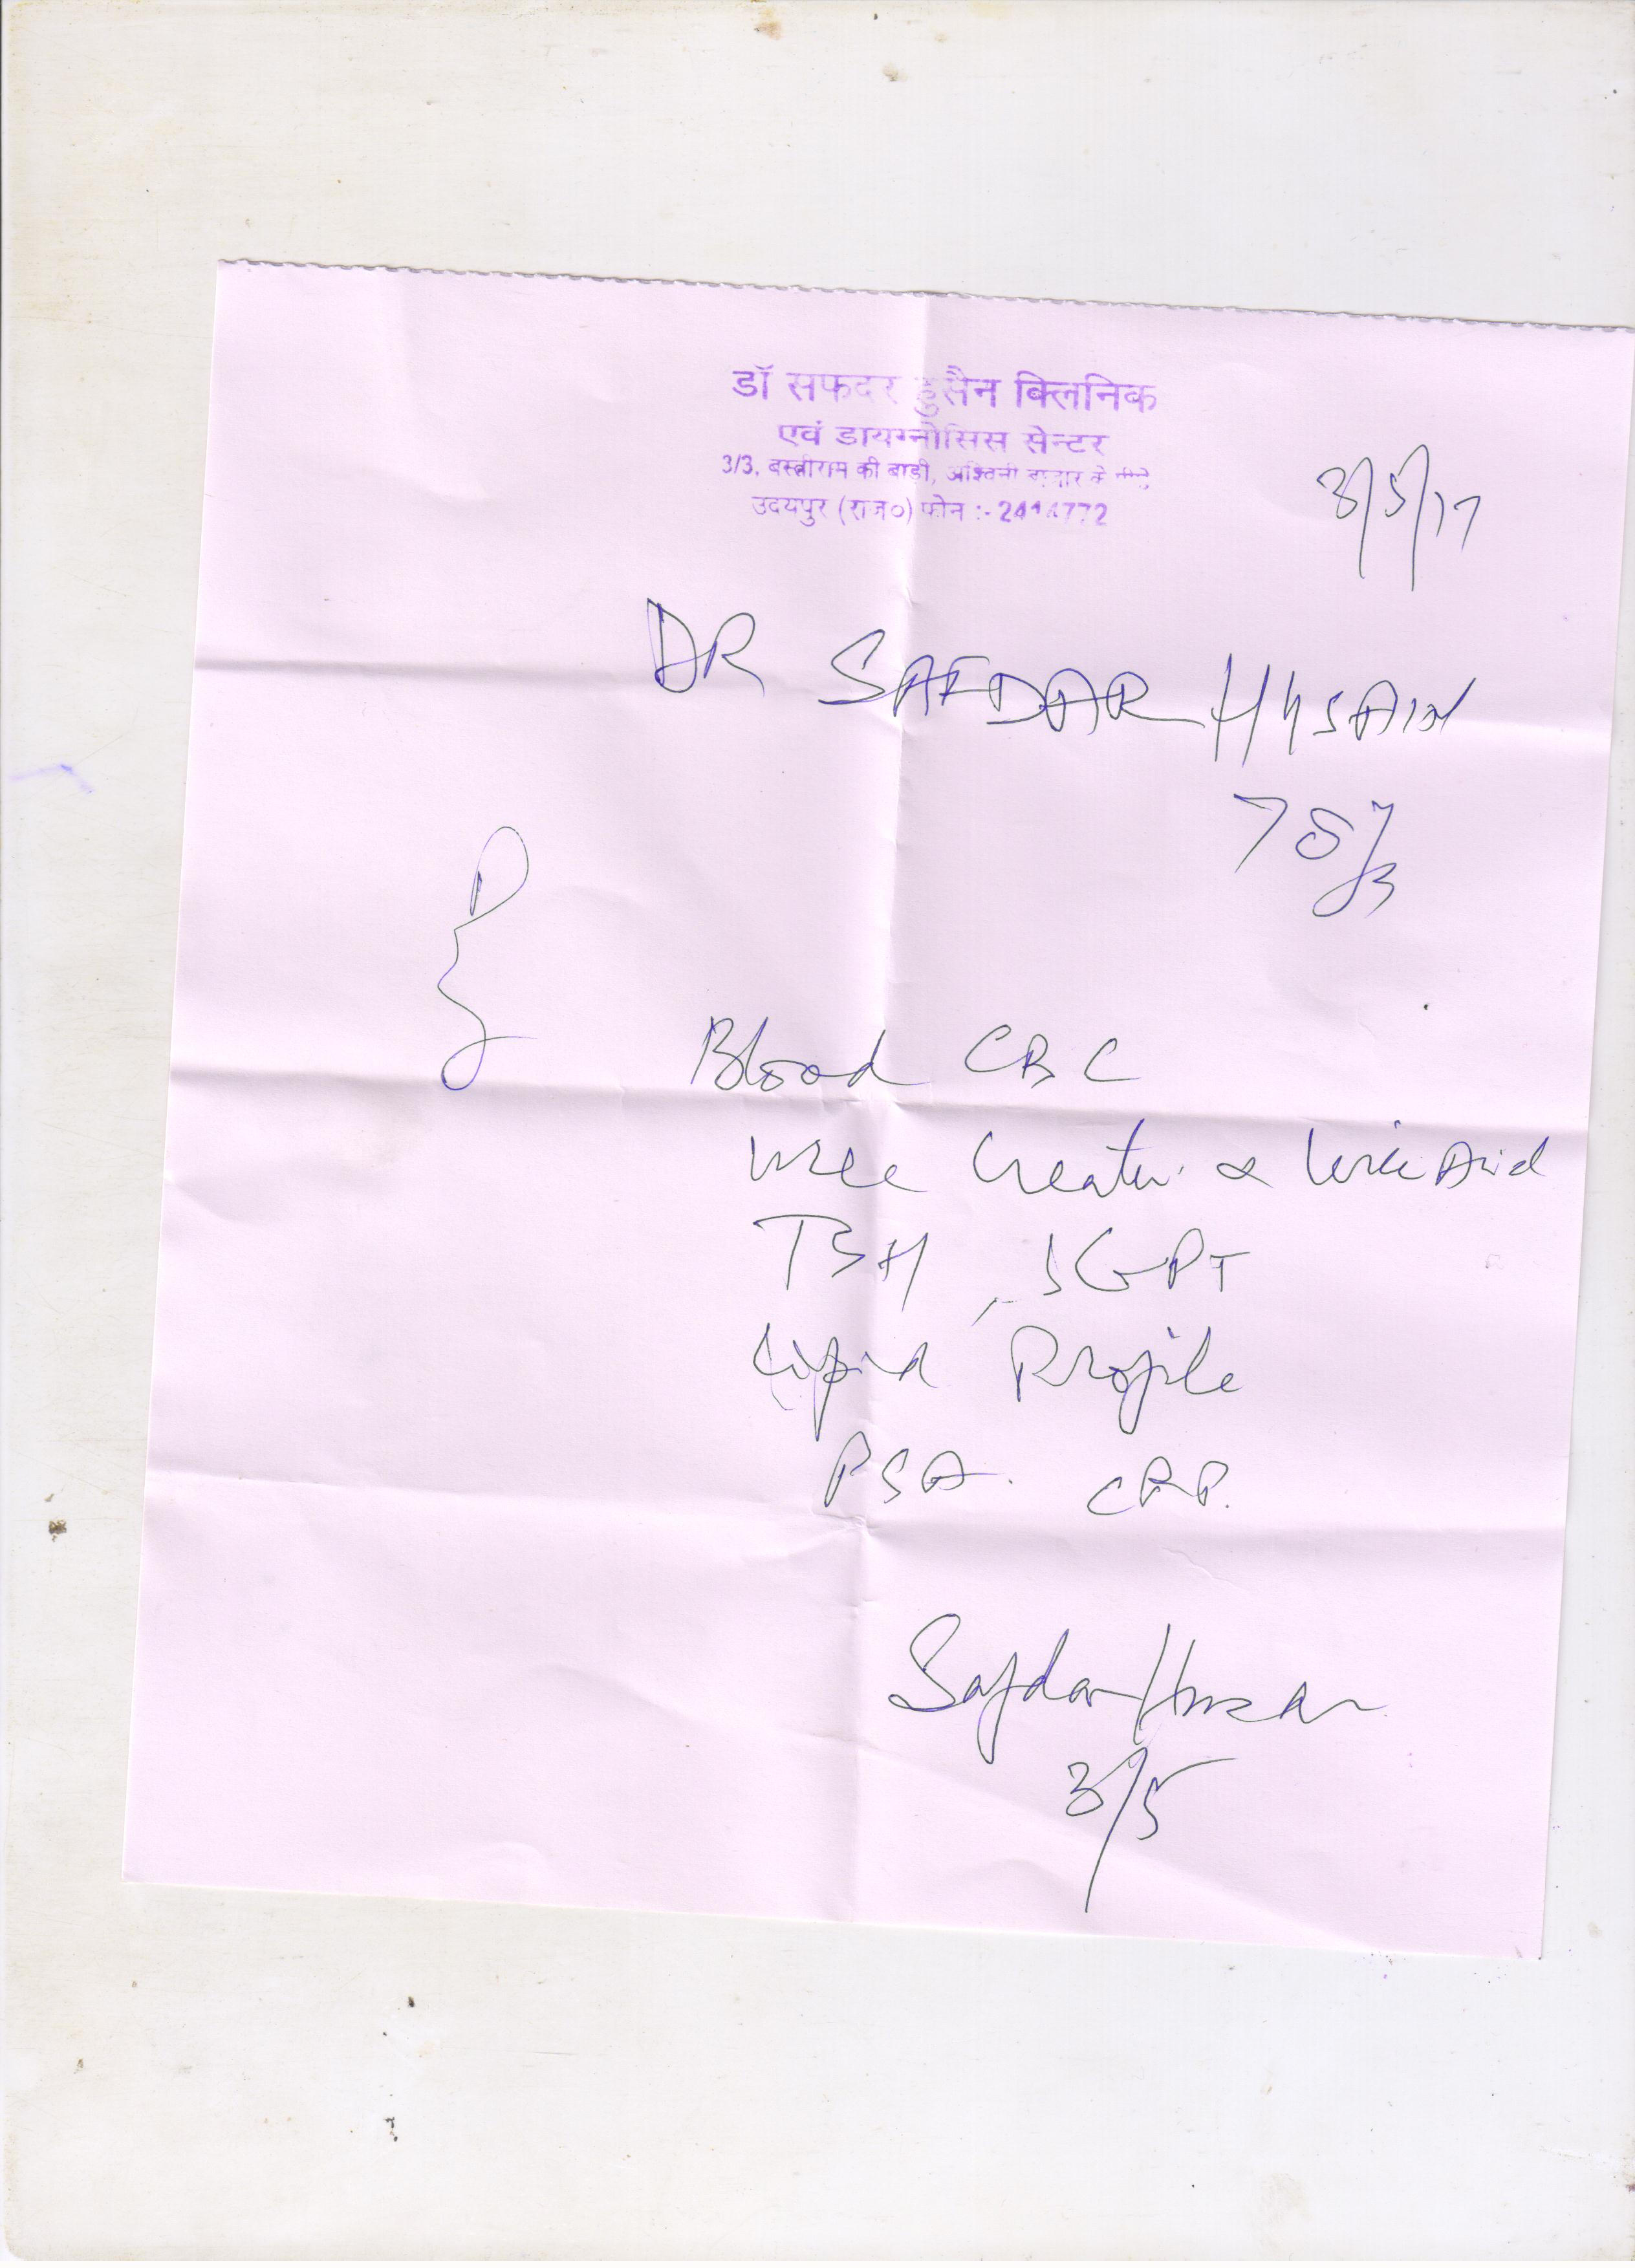 डॉ सफदर हुसैन क्लिनिक
एवं डायग्नोसिस सेन्टर
3/3, बस्तीराम की बाड़ी, अश्विनी बाजार के
उदयपुर (राज०) फोन :- 2414772
3/5/17
DR SAFDAR HUSAIN
Blood CBC
Uric Acid
TSH, SGPT
Lipid Profile
PSA. CRP.
Safdar Husain
3/5